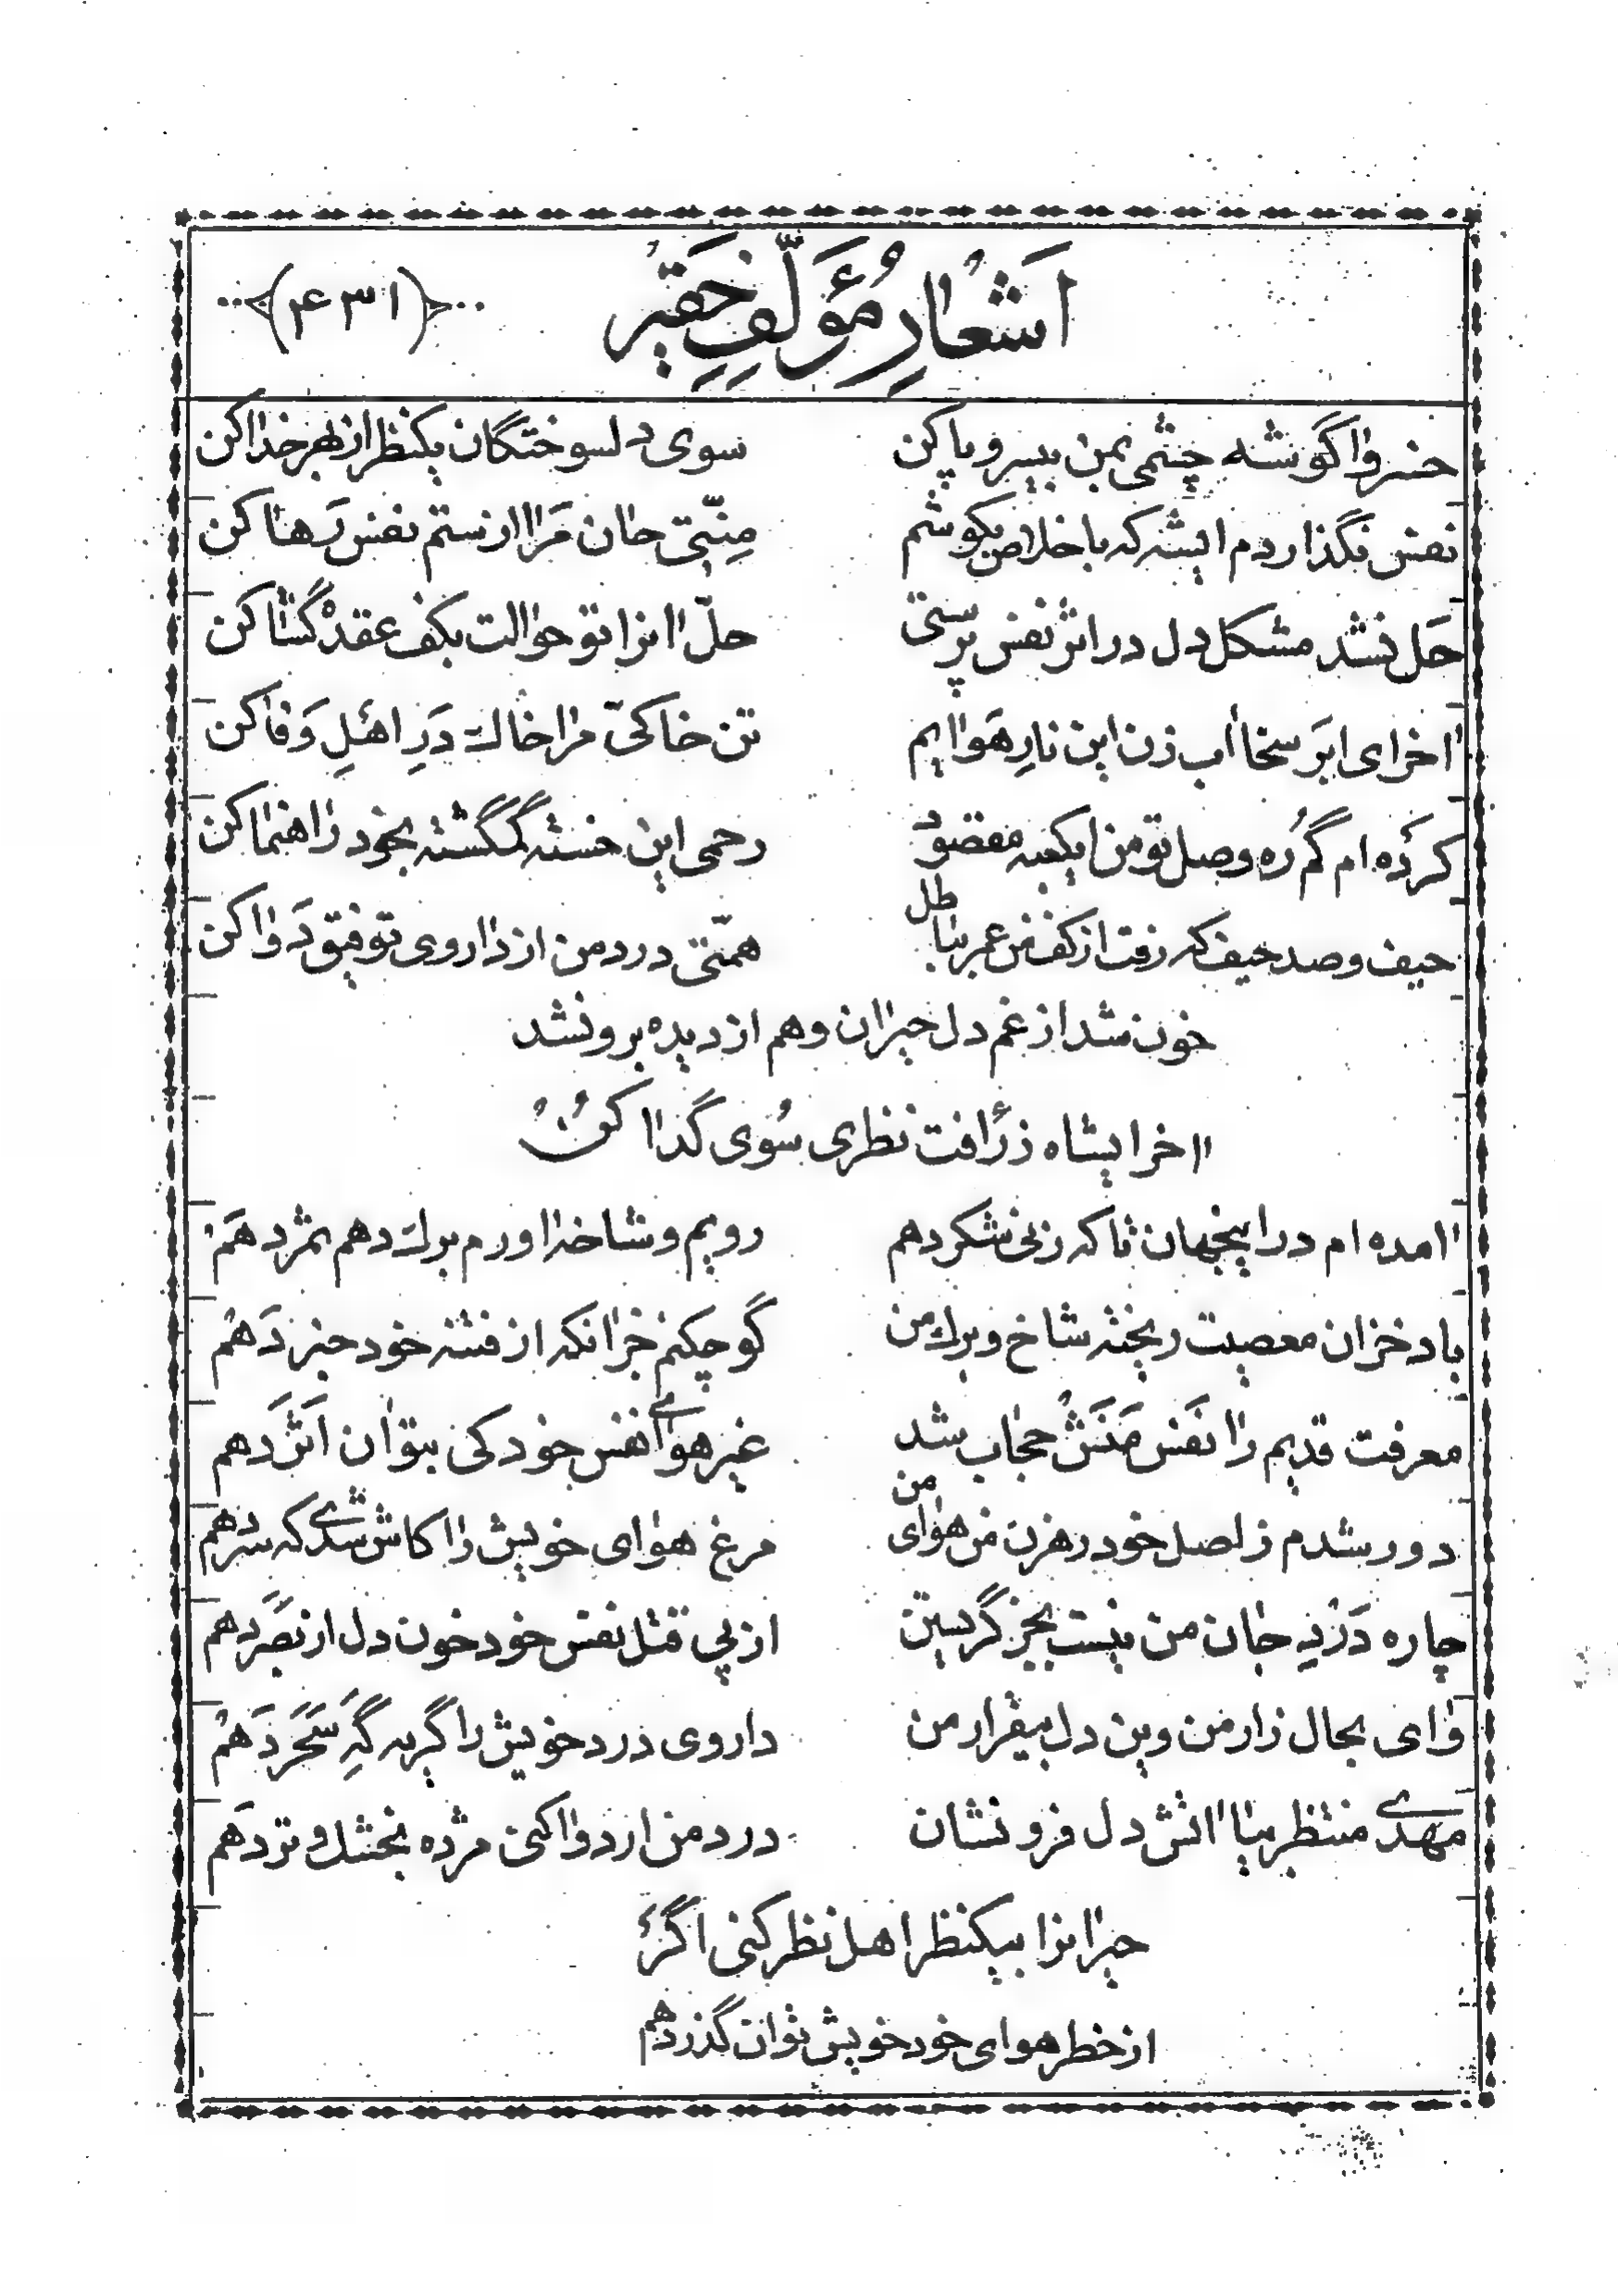 اَشعارِ مُؤَلِّفِ حَقیرْ ﴿۴۳۱﴾
خسروا گوشه چشمی بمن بیسر و پا کن سوی دلسوختگان یکنظر از بهر خدا کن
نفس نگذاردم ایشه که باخلاص بکوشم مِنّتی جان مَرا از ستم نفس رَها کن
حَل نشد مشکل دل در اثر نفس پرستی حلّ اینرا تو حوالت بکف عقدهْ گشا کن
اخر ای ابرَ سخا اب زن این نارِ هَوایم تن خاکیّ مرا خاك دَرِ اهلِ وَفا کن
کردَه ام گُم ره وصل تو من ایکعبه مقصود رحمی این خسته گمگشته بخود راهنما کن
حیف و صد حیف که رفت از کف من عمر بباطل همّتی درد من از داروی توفیق دَوا کن
خون شد از غم دل حیران و هم از دیده برون شد
اخر ایشاه ز رَافت نظری سُوی گدا کُنْ
امده ام در اینجهان تا که ز نی شکر دهم رویم و شاخه اورم برك دهم ثمر دهَم
باد خزان معصیت ریخته شاخ و برك من گو چکنم جز انکه از فتنه خود خبر دَهْم
معرفت قدیم را نَفس مَنَشْ حجاب شد غیر هوای نفس خود کی بتوان اَثَر دهم
دور شدم ز اصل خود رهزن من هوای من مرغ هوای خویش را کاش شدی که سر دهم
چاره دَرْدِ جان من نیست بجز گریستن از پی قتل نفس خود خون دل از بصَر دهم
وای بحال زار من وین دل بیقرار من داروی درد خویش را گریه گَهِ سَحَر دَهْم
مهدی منتظر بیا اتش دل فرو نشان درد من ار دوا کنی مژده بخشك و تر دهَم
حیرانرا بیکنظر اهل نظر کنی اگرْ
از خطر هوای خود خویش توان گذر دهم